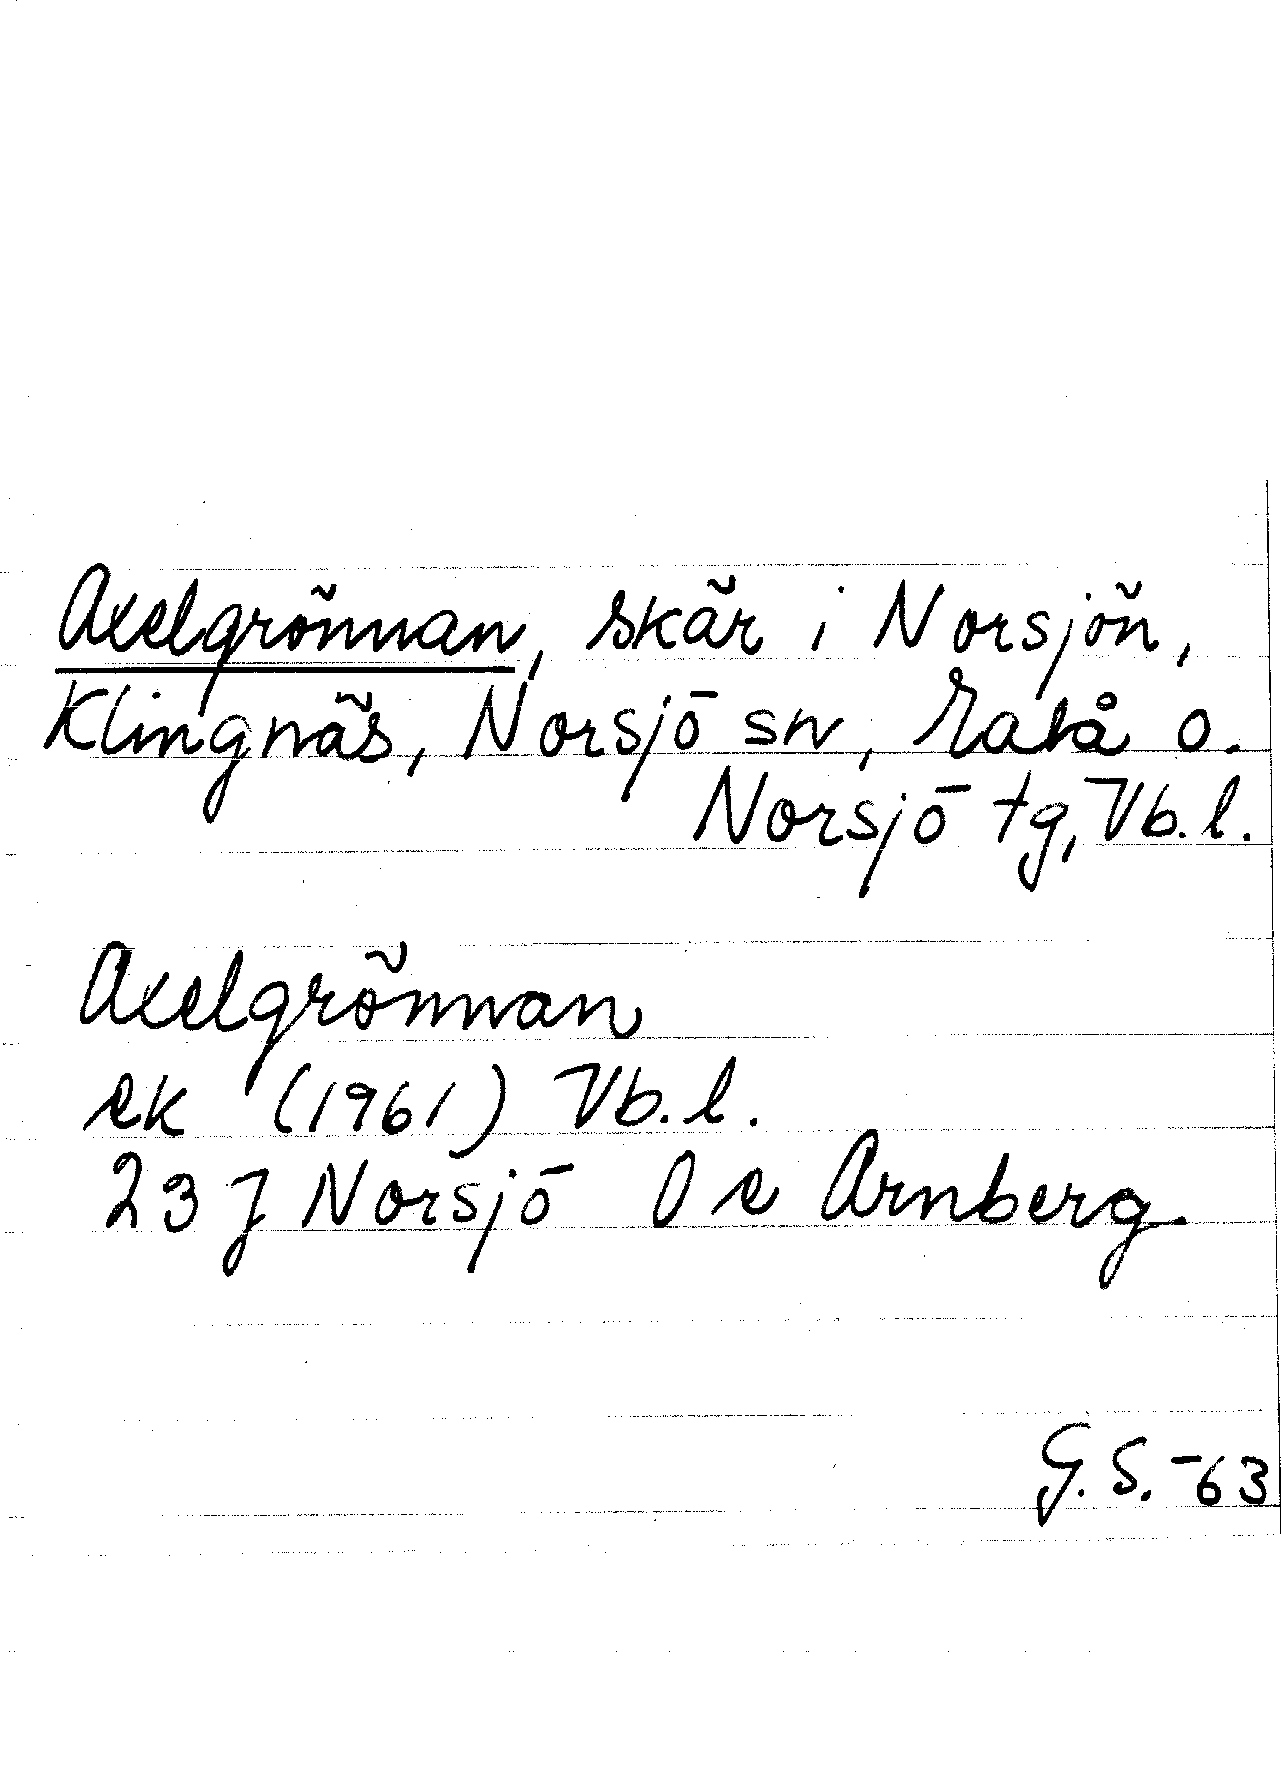 Axelgrönnan, skär i Norsjön,
Klingnäs, Norsjö sn, Malå o.
Norsjö tg, Vb. l.
Axelgrönnan
ek (1961) Vb. l.
23 J Norsjö O e Arnberg.
G. S. -63